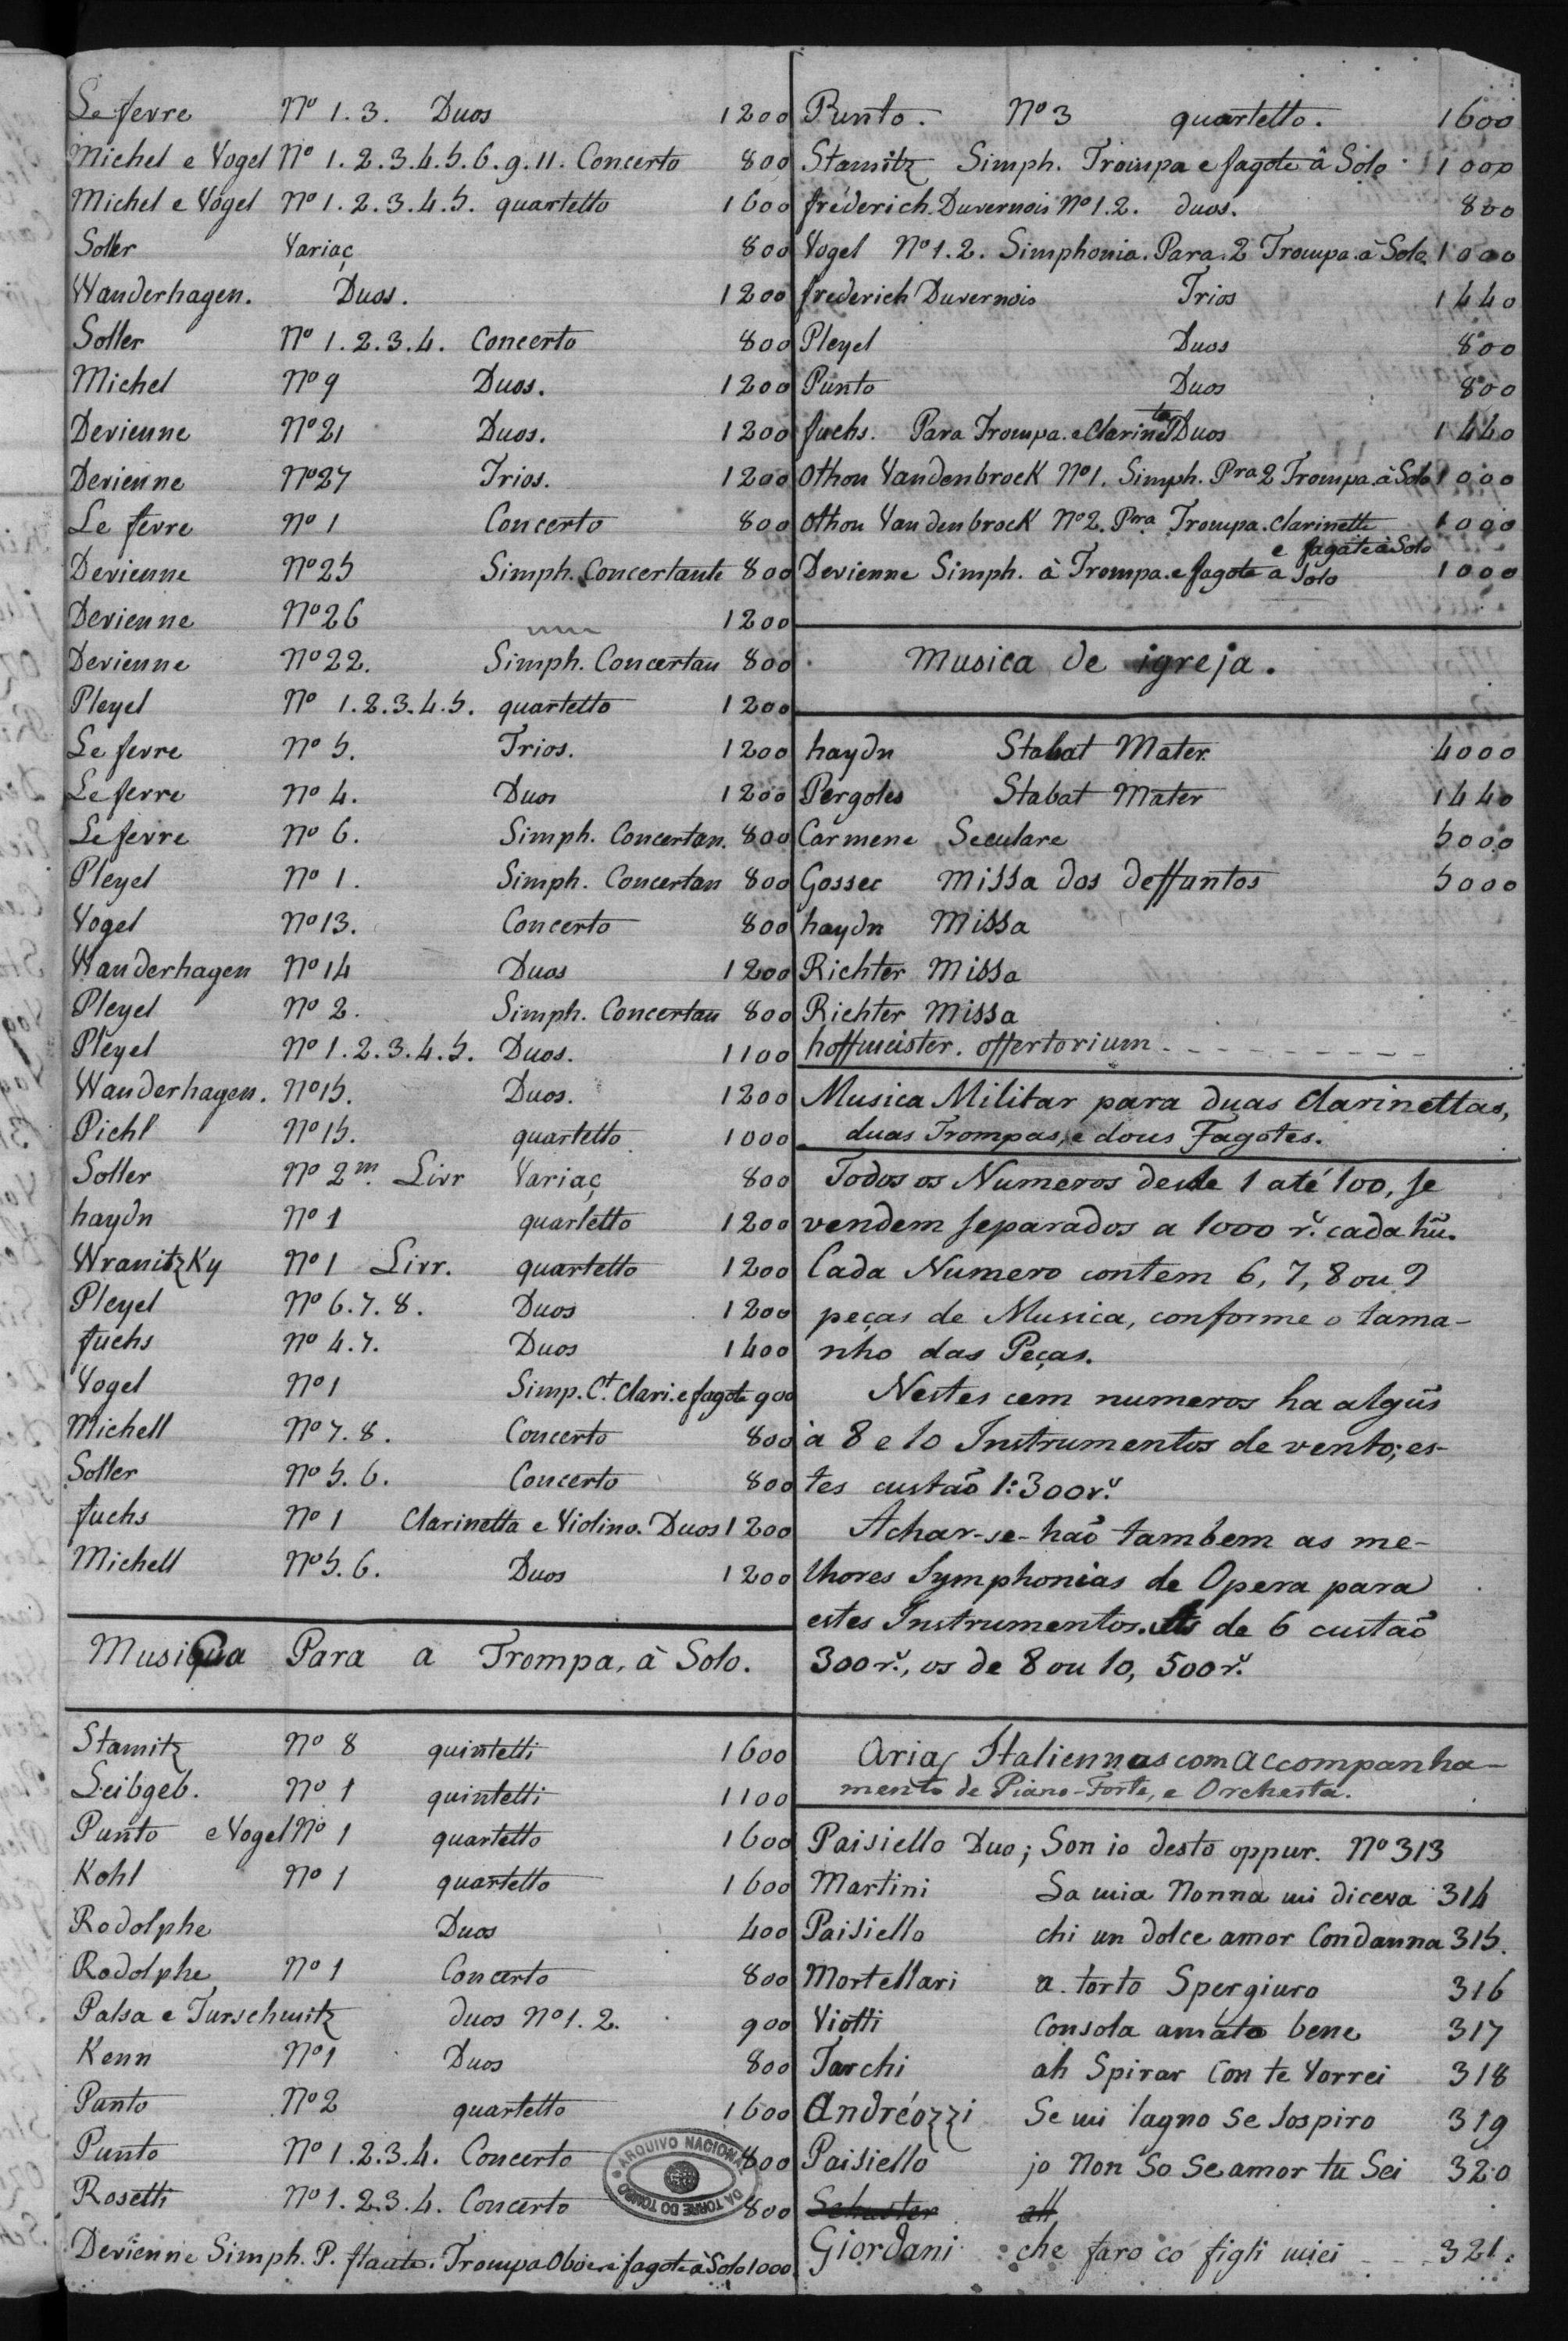 Le fevre Nº 1. 3. Duos 1200
Michel e Vogel Nº 1. 2. 3. 4. 5. 6. 9. 11. Concerto 800
Michel e Vogel Nº 1. 2. 3. 4. 5. quartetto 1600
Soller Variaç 800
Wanderhagen. Duos. 1200
Soller Nº 1. 2. 3. 4. Concerto 800
Michel Nº 9 Duos. 1200
Devienne Nº 21 Duos. 1200
Devienne Nº 27 Trios. 1200
Le fevre Nº 1 Concerto 800
Devienne Nº 25 Simph. Concertante 800
Devienne Nº 26 1200
Devienne Nº 22. Simph. Concertan 800
Pleyel Nº 1. 2. 3. 4. 5. quartetto 1200
Le fevre Nº 5. Trios. 1200
Le fevre Nº 4. Duos 1200
Le fevre Nº 6. Simph. Concertan. 800
Pleyel Nº 1. Simph. Concertan 800
Vogel Nº 13. Concerto 800
Wanderhagen Nº 14 Duos 1200
Pleyel Nº 2. Simph. Concertan 800
Pleyel Nº 1. 2. 3. 4. 5. Duos. 1100
Wanderhagen. Nº 15. Duos. 1200
Pichl Nº 15. quartetto 1000
Soller Nº 2m. Livr Variaç 800
haydn Nº 1 quartetto 1200
Wranitzky Nº 1 Livr. quartetto 1200
Pleyel Nº 6. 7. 8. Duos 1200
fuchs Nº 4. 7. Duos 1400
Vogel Nº 1 Simp. Ct. Clari. e fagote 900
Michell Nº 7. 8. Concerto 800
Soller Nº 5. 6. Concerto 800
fuchs Nº 1 Clarinetta e Violino. Duos 1200
Michell Nº 5. 6. Duos 1200
Musiqua Para a Trompa, à Solo.
Stamitz Nº 8 quintetti 1600
Leibgeb. Nº 1 quintetti 1100
Punto e Vogel Nº 1 quartetto 1600
Kohl Nº 1 quartetto 1600
Rodolphe Duos 400
Rodolphe Nº 1 Concerto 800
Palsa e Turschmitz duos Nº 1. 2. 900
Kenn Nº 1 Duos 800
Punto Nº 2 quartetto 1600
Punto Nº 1. 2. 3. 4. Concerto 800
Rosetti Nº 1. 2. 3. 4. Concerto 800
Devienne Simph. P. flauto. Trompa Oboe e fagote à Solo 1000
ARQUIVO NACIONAL DA TORRE DO TOMBO
Punto. Nº 3 quartetto. 1600
Stamitz Simph. Trompa e fagote â Solo 1000
fréderich. Duvernois Nº 1. 2. duos. 800
Vogel Nº 1. 2. Simphonia. Para. 2 Trompa. à Solo. 1000
frederich Duvernois Trios 1440
Pleyel Duos 800
Punto Duos 800
fuchs. Para Trompa. e Clarinetta Duos 1440
Othon Vandenbrock Nº 1. Simph. Pra 2 Trompa. à Solo 1000
Othon Vandenbrock Nº 2. Pra Trompa. clarinette 1000
e fagote à Solo
Devienne Simph. à Trompa. e fagote a Solo 1000
Musica de igreja.
haydn Stabat Mater. 4000
Pergoles Stabat Mater 1440
Carmene Seculare 5000
Gossec Missa dos deffuntos 5000
haydn Missa
Richter Missa
Richter Missa
hoffmeister. offertorium - - - - - - - - - -
Musica Militar para duas Clarinettas,
duas Trompas, e dous Fagotes.
Todos os Numeros desde 1 até 100, se
vendem separados a 1000 rs. cada hũ.
Cada Numero contem 6, 7, 8 ou 9
peças de Musica, conforme o tama-
nho das Peças.
Nestes cem numeros ha algũs
à 8 e 10 Instrumentos de vento; es-
tes custaõ 1:300 rs.
Achar-se-haõ tambem as me-
lhores Symphonias de Opera para
estes Instrumentos. As de 6 custaõ
300 rs., os de 8 ou 10, 500 rs.
Arias Italiennas com accompanha-
mento de Piano-Forte, e Orchesta.
Paisiello Duo; Son io desto oppur. Nº 313
Martini La mia Nonna mi diceva 314
Paisiello chi un dolce amor Condanna 315.
Mortellari a torto Spergiuro 316
Viotti Consola amato bene 317
Tarchi ah Spirar Con te Vorrei 318
Andréozzi Se mi lagno se Sospiro 319
Paisiello jo Non So Se amor tu Sei 320
Schuster ah
Giordani che faro co figli miei 321.